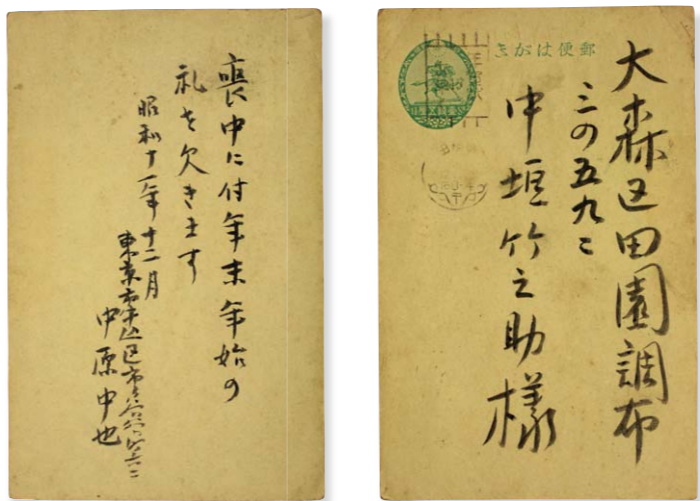 喪中に付年末年始の
礼を欠きます
昭和十一年十二月
東京市牛込区市ヶ谷谷町六二
中原中也
郵便はがき
大森区田園調布
三の五九二
中垣竹之助様